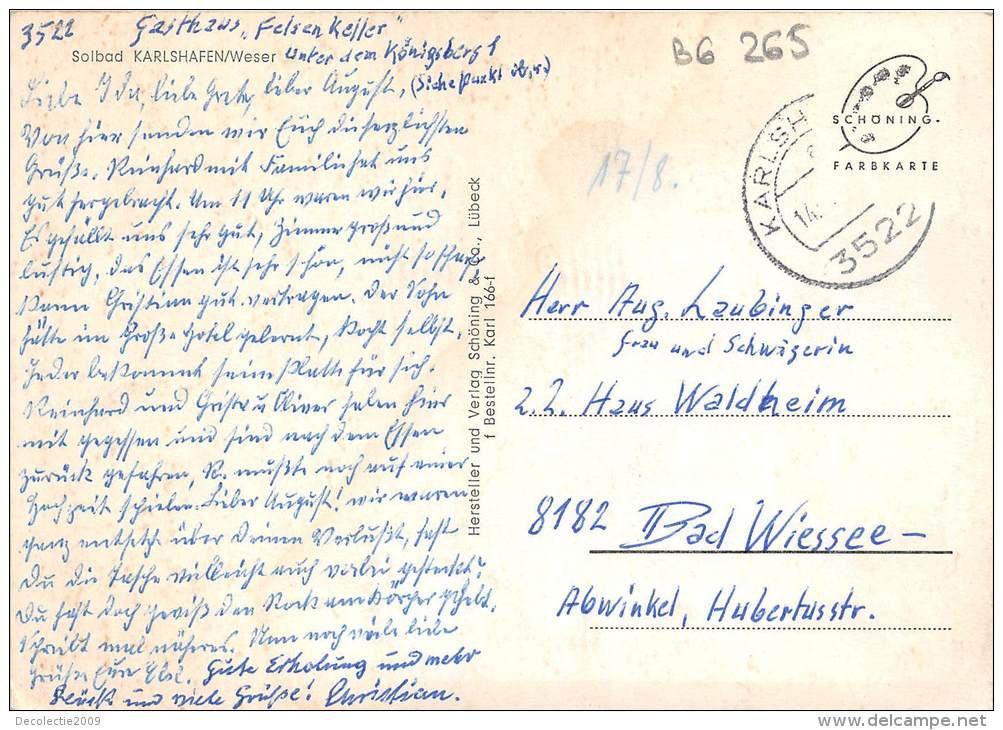 3522 Gasthaus „Felsenkeller"
Solbad KARLSHAFEN/Weser unter dem Königsberg !
(Siehe Punkt ib.v.)
Liebe Ida, liebe Grete, lieber August,
Von hier senden wir Euch die herzlichsten
Grüße. Reinhard mit Familie hat uns
gut hergebracht. Um 11 Uhr waren wir hier,
Es gefällt uns sehr gut, Zimmer groß und
luftig, das Essen ist sehr schön, nicht so scharf,
kann Christian gut vertragen. Der Sohn
hätte im Große Hotel gelernt, kocht selbst.
Jeder bekommt seine Platte für sich.
Reinhard und Christa u Oliver haben hier
mit gegessen und sind nach dem Essen
zurück gefahren, R. mußte noch auf einer
Hochzeit spielen. Lieber August! wir waren
ganz entsetzt über Deinen Verlußt, hast
Du die Tasche vielleicht auch vorbei gesteckt?
Du hast doch gewiß den Rock am Körper gehabt.
Schreibt mal näheres. Nun noch viele liebe
Grüße Eure Gute Erholung und mehr
Glück und viele Grüße! Christian.
Hersteller und Verlag Schöning & Co., Lübeck
f Bestellnr. Karl 166-f
BG 265
SCHÖNING-
FARBKARTE
KARLSH
14.
3522
17/8.
Herr Aug. Laubinger
Frau und Schwägerin
z.Z. Haus Waldheim
8182 Bad Wiessee –
Abwinkel, Hubertusstr.
Decolectie2009
delcampe.net